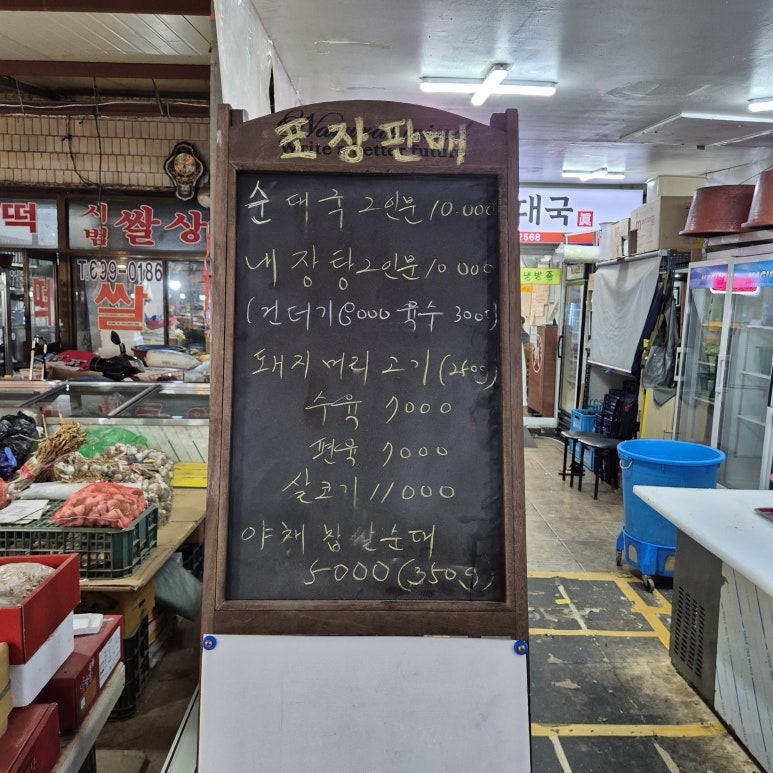 포장판매
순대국 2인분 10.000
내장탕 2인분 10 000
(건더기 8000 육수 3000)
돼지머리고기(250g)
수육 7000
편육 7000
살코기 11000
야채 찹쌀순대
5000(350g)
떡
시범 쌀상
T.699-0186
떡
쌀
대국
2568
냉방중